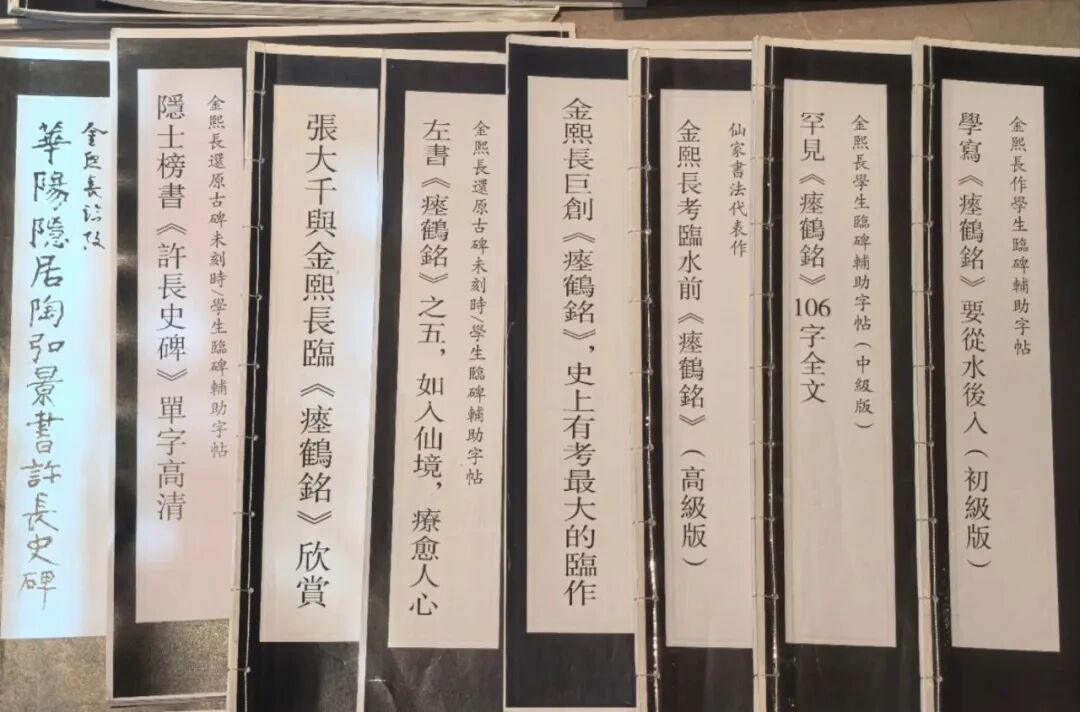 金熙長作學生臨碑輔助字帖
學寫《瘞鶴銘》要從水後入（初級版）
金熙長學生臨碑輔助字帖（中級版）
罕見《瘞鶴銘》106字全文
仙家書法代表作
金熙長考臨水前《瘞鶴銘》（高級版）
金熙長巨創《瘞鶴銘》，史上有考最大的臨作
金熙長還原古碑未刻時/學生臨碑輔助字帖
左書《瘞鶴銘》之五，如入仙境，療愈人心
張大千與金熙長臨《瘞鶴銘》欣賞
金熙長還原古碑未刻時/學生臨碑輔助字帖
隱士榜書《許長史碑》單字高清
金熙長臨攷
華陽隱居陶弘景書許長史碑